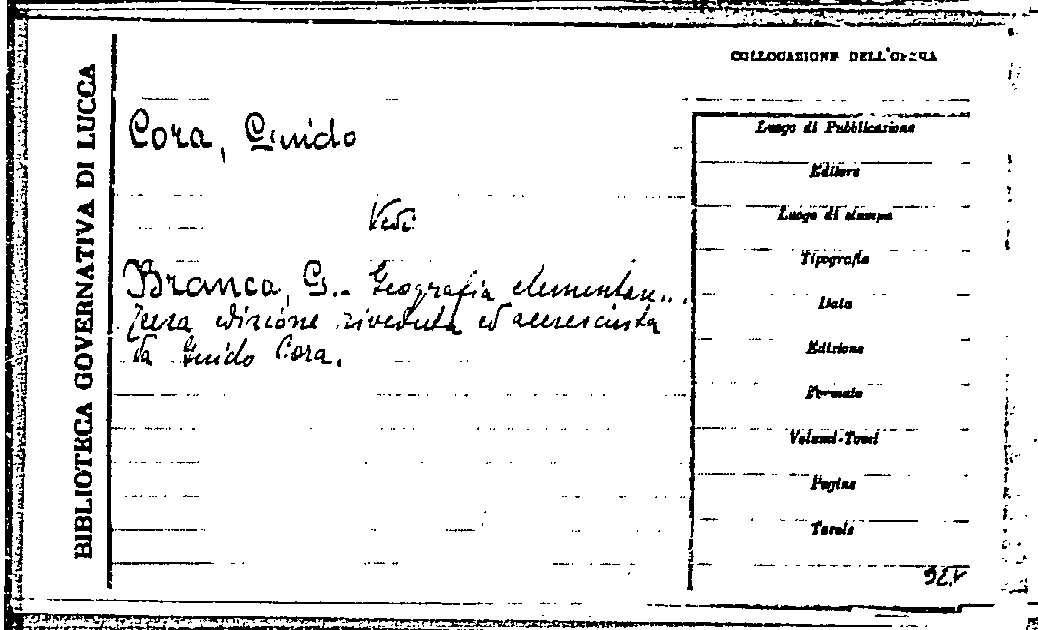 BIBLIOTECA GOVERNATIVA DI LUCCA
COLLOCAZIONE DELL'OPERA
Cora, Guido
Vedi
Branca, G.. Geografia elementare...
edizione riveduta ed accresciuta
da Guido Cora.
Luogo di Pubblicazione
Editore
Luogo di stampa
Tipografia
Data
Edizione
Formato
Volumi-Tomi
Pagine
Tavole